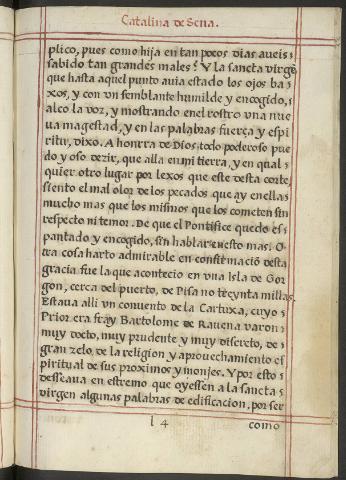 Catalina de Sena.
plico, pues como hija en tan pocos dias aueis
sabido tan grandes males? Y la sancta virgē
que hasta aquel punto auia estado los ojos ba
xos, y con vn semblante humilde y encogido,
alço la voz, y mostrando en el rostro vna nue
ua magestad, y en las palabras fuerça y espi
ritu, dixo. A honrra de Dios todo poderoso pue
do y oso dezir, que alla en mi tierra, y en qual
quier otro lugar por lexos que este desta corte,
siento el mal olor de los pecados que ay en ella
mucho mas que los mismos que los cometen sin
respecto ni temor. De que el Pontifice quedo es
pantado y encogido, sin hablar en esto mas. O
tra cosa harto admirable en confirmaciō desta
gracia fue la que acontecio en vna Isla de Gor
gon, cerca del puerto, de Pisa no treynta millas.
Estaua alli vn conuento de la Cartuxa, cuyo
Prior era fray Bartolome de Rauena varon
muy docto, muy prudente y muy discreto, de
gran zelo de la religion y aprouechamiento es
piritual de sus proximos y monjes. Y por esto
desseaua en estremo que oyessen a la sancta
virgen algunas palabras de edificacion, por ser
l 4
como